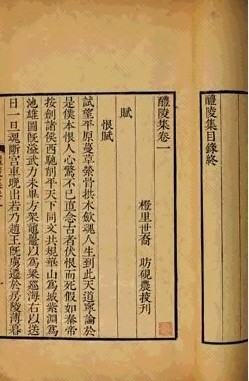 醴陵集目錄終
醴陵集卷一
橙里世裔 昉硯農挍刊
賦
恨賦
試望平原蔓草縈骨拱木歛魂人生到此天道寧論於
是僕本恨人心驚不已直念古者伏恨而死假如秦帝
按劍諸侯西馳削平天下同文共規華山為城紫淵為
池雄圖既溢武力未畢方架黿鼉以為梁巡海右以送
日一旦魂斷宮車晚出若乃趙王既虜遷於房陵薄暮